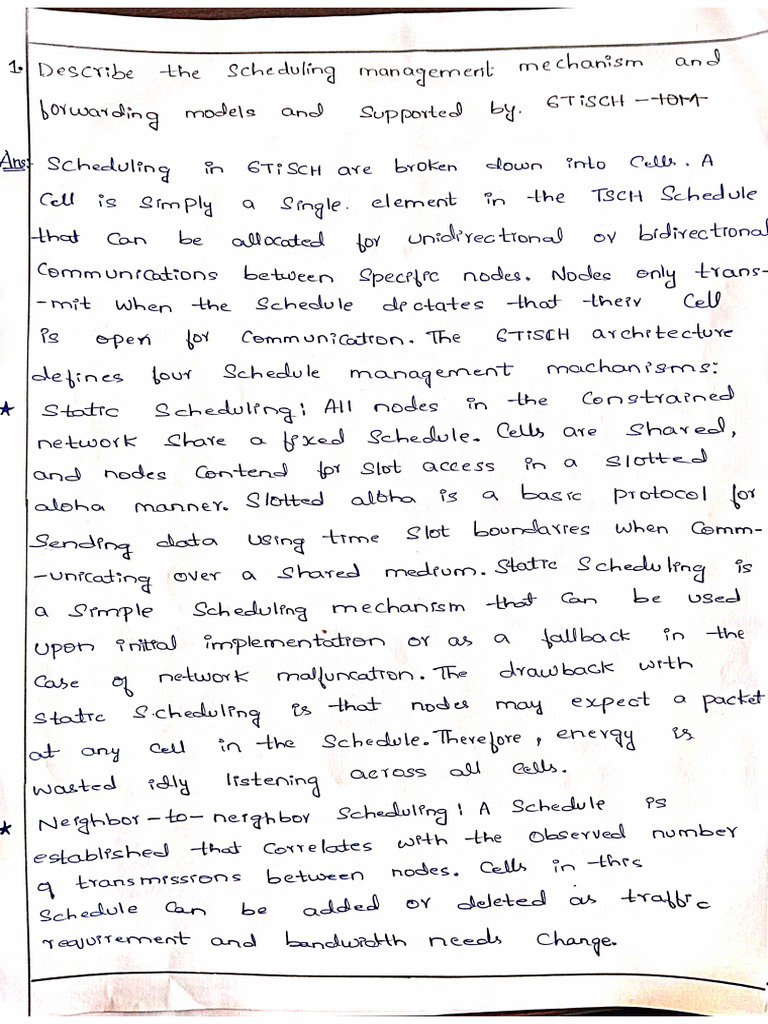 1. Describe the Scheduling management mechanism and
forwarding models and Supported by. 6TiSCH -10M-
Ans: Scheduling in 6TiSCH are broken down into Cells. A
Cell is simply a single. element in the TSCH Schedule
that can be allocated for unidirectional or bidirectional
Communications between Specific nodes. Nodes only trans-
-mit when the Schedule dictates that their Cell
is open for Communication. The 6TiSCH architecture
defines four Schedule management machanisms:
★ Static Scheduling: All nodes in the Constrained
network Share a fixed Schedule. Cells are shared,
and nodes Contend for Slot access in a slotted
aloha manner. Slotted aloha is a basic protocol for
Sending data using time Slot boundaries when Comm-
-unicating over a shared medium. Static Scheduling is
a Simple Scheduling mechanism that can be used
upon initial implementation or as a fallback in the
Case of network malfuncation. The drawback with
Static Scheduling is that nodes may expect a packet
at any Cell in the Schedule. Therefore, energy is
wasted idly listening across all Cells.
★ Neighbor-to-neighbor Scheduling: A Schedule is
established that Correlates with the observed number
of transmissions between nodes. Cells in this
Schedule Can be added or deleted as traffic
requirement and bandwidth needs Change.